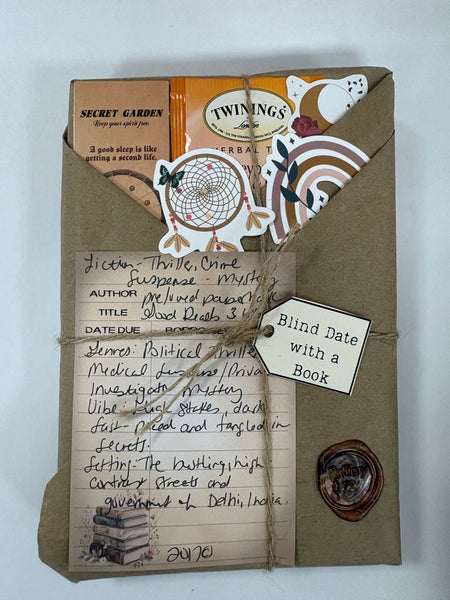 SECRET GARDEN
Keep your spirit free.
A good sleep is like
getting a second life.
TWININGS
London
HERBAL T
Fiction - Thriller, Crime
Suspense - Mystery
AUTHOR preloved paperback
TITLE Good Reads 3
DATE DUE
Genres: Political Thriller
Medical Suspense/Private
Investigator Mystery
Vibe: High Stakes, dark
fast-paced and tangled in
secrets.
Setting: The bustling, high
contrast streets and
government of Delhi, India.
Blind Date
with a
Book